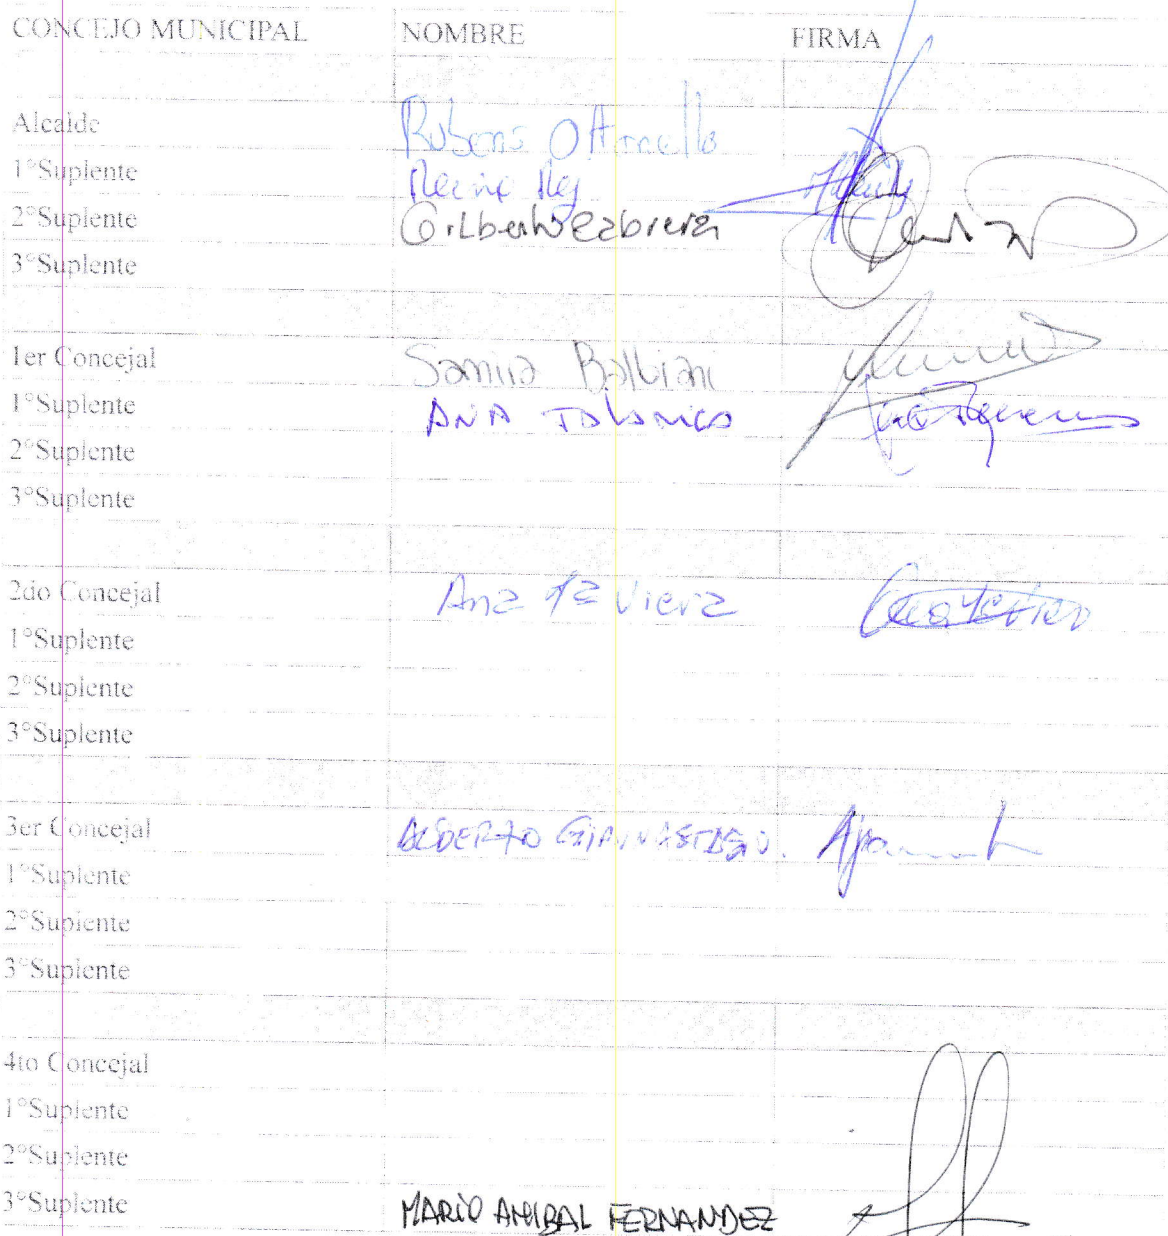 CONCEJO MUNICIPAL NOMBRE FIRMA
Alcalde Rubens Ottonello
1°Suplente
2°Suplente Gilberto Cabrera
3°Suplente
1er Concejal Samira Balbiani
1°Suplente ANA
2°Suplente
3°Suplente
2do Concejal Ana Mª Viera
1°Suplente
2°Suplente
3°Suplente
3er Concejal ALBERTO
1°Suplente
2°Suplente
3°Suplente
4to Concejal
1°Suplente
2°Suplente
3°Suplente MARIO ANIBAL FERNANDEZ